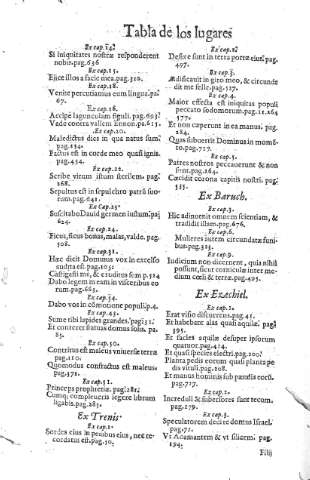 Tabla de los lugares
Ex cap. 14.
Si iniquitates nostræ responderent
nobis. pag. 636
Ex cap. 15.
Ejice illos a facie mea. pag.
Ex cap. 18.
Venite percutiamus eum lingua. pa
67.
Ex cap. 18.
Accipe lagunculam figuli. pag. 603
Vade coceva vallem Ennon. pa. 615.
.Ex cap. 20.
Maledictus dies in qua natus sum.
pag. 234.
Factus est in corde meo quasi ignis.
pag. 454.
Ex cap. 22.
Scribe virum istum sterilem pag.
268.
Sepultus est in sepulchro patrũ suo-
rum. pag. 641.
Ex cap. 23.
Suscitabo Dauid germen iustum. pag
624.
Ex cap. 24.
Ficus, ficus bonas, malas, valde. pag.
508.
Ex cap. 31.
Hæc dicit Dominus vox in excelso
audita est. pag. 103.
Castigasti me, & eruditus sum p. 524
Dabo legem in eam in visceribus eo
rum. pag. 663.
Ex cap. 34.
Dabo vos in cõmotione populi. p. 4.
Ex cap. 43.
Sume tibi lapides grandes. pag. 31.
Et conteret statuas domus solis. pa.
85.
Ex cap. 50.
Contritus est malleus vniuersæ terræ
pag. 210.
Quomodo confractus est malleus
pag. 471.
Ex cap. 51.
Princeps propheteriæ. pag. 281.
Cumq; compleueris legere librum
ligabis. pag. 285.
Ex Trenis.
Ex cap. 1.
Sordes eius in pedibus eius, nec re-
cordata est. pag. 50.
Ex cap. 2.
Defixæ sunt in terra portæ eius. pag.
497.
Ex cap. 3.
Ædificauit in giro meo, & circunde
dit me felle. pag. 527.
Ex cap. 4.
Maior effecta est iniquitas populi
peccato sodomorum. pag. 12. 264
177.
Et non ceperunt in ea manus. pag.
284.
Quia subuertit Dominus in momẽ-
to. pag. 717.
Ex cap. 5.
Patres nostros peccauerunt & non
sunt. pag. 264.
Cæcidit corona capitis nostri. pag.
515.
Ex Baruch.
Ex cap. 3.
Hic adinuenit omnem scientiam, &
tradidit illam. pag. 676.
Ex cap. 6.
Mulieres autem circundatæ funi-
bus. pag. 323.
Ex cap. 9.
Iudicium non dicernent, quia nihil
possunt, sicut corniculæ inter me
dium cœli & terræ. pag. 597.
Ex Ezechiel.
Ex cap. 1.
Erat visio discurrens. pag. 45.
Et habebant alas quasi aquilæ. pag.
395.
Et facies aquilæ desuper ipsorum
quatuor. pag. 424.
Et quasi species electri. pag. 200.
Planta pedis eorum quasi planta pe
dis vituli. pag. 108.
Et manus hominis sub pennis eorũ.
pag. 717.
Ex cap. 2.
Increduli & subuersores sunt tecum.
pag. 179.
Ex cap. 3.
Speculatorem dedi te domui Israel.
pag. 71.
Vt Adamantem & vt silicem. pag
194.
Filij